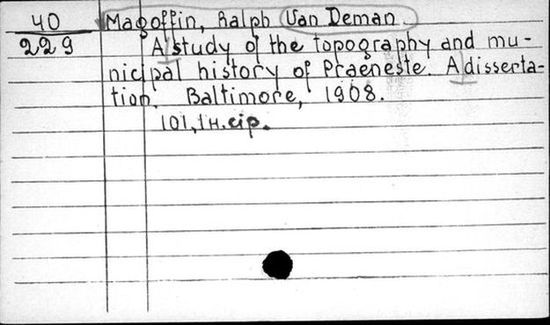 40 Magoffin, Ralph Van Deman
229 A study of the topography and mu-
nicipal history of Praeneste. A disserta-
tion. Baltimore, 1908.
101, 1 н. cip.